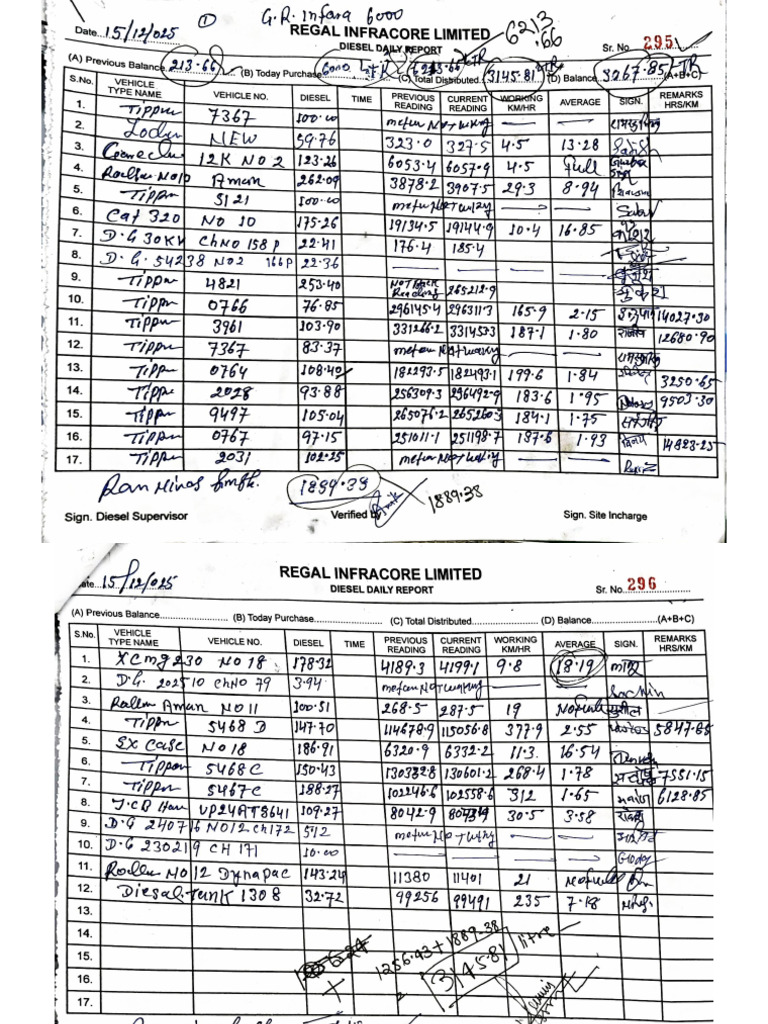 ① G.R. Infara 6000
Date...15/12/2025
REGAL INFRACORE LIMITED
6213.66
DIESEL DAILY REPORT
Sr. No. 295
(A) Previous Balance 213.66 (B) Today Purchase 6000 LTR (C) Total Distributed 6213.66 LTR 3145.81 LTR (D) Balance 3067.85 LTR (A+B+C)
S.No. VEHICLE TYPE NAME VEHICLE NO. DIESEL TIME PREVIOUS READING CURRENT READING WORKING KM/HR AVERAGE SIGN. REMARKS HRS/KM
1. Tippr 7367 100.00 meter Not working
2. Loder NEW 59.76 323.0 327.5 4.5 13.28
3. 12K NO 2 123.26 6053.4 6057.9 4.5 Full
4. Roller NO10 Aman 262.09 3878.2 3907.5 29.3 8.94
5. Tippr 5121 100.00 meter Not working
6. Cat 320 NO 10 175.26 19134.5 19144.9 10.4 16.85
7. D.G 30KV ChNO 158 P 22.41 176.4 185.4
8. D.G. 54238 NO2 166 P 22.36
9. Tippr 4821 253.40 Not Back Reading 265212.9
10. Tippr 0766 76.85 296145.4 296311.3 165.9 2.15 14027.30
11. Tippr 3961 103.90 331266.2 331453.3 187.1 1.80 12680.90
12. Tippr 7367 83.37 meter Not working
13. Tippr 0764 108.40 182293.5 182493.1 199.6 1.84 3250.65
14. Tippr 2028 93.88 256309.3 256492.9 183.6 1.95 9503.30
15. Tippr 9497 105.04 265076.2 265260.3 184.1 1.75
16. Tippr 0767 97.15 251011.1 251198.7 187.6 1.93 14923.25
17. Tippr 2031 102.25 meter Not working
1889.38
1889.38
Sign. Diesel Supervisor Verified by Sign. Site Incharge
REGAL INFRACORE LIMITED
Date...15/12/2025
DIESEL DAILY REPORT
Sr. No. 296
(A) Previous Balance (B) Today Purchase (C) Total Distributed (D) Balance (A+B+C)
S.No. VEHICLE TYPE NAME VEHICLE NO. DIESEL TIME PREVIOUS READING CURRENT READING WORKING KM/HR AVERAGE SIGN. REMARKS HRS/KM
1. XCmg 230 NO 18 178.32 4189.3 4199.1 9.8 18.19
2. D.G. 202510 ChNO 79 3.94 meter Not working Sachin
3. Roller Aman NO 11 100.51 268.5 287.5 19 No full सुशील
4. Tippr 5468 D 147.70 114678.9 115056.8 377.9 2.55 5847.65
5. EX Case NO 18 186.91 6320.9 6332.2 11.3 16.54
6. Tippor 5468 C 150.43 130332.8 130601.2 268.4 1.78 7551.15
7. Tippr 5467 C 188.27 102246.6 102558.6 312 1.65 6128.85
8. J.C.B UP24AT8641 109.27 8042.9 30.5 3.58
9. D.G 2407 16 NO12 Ch172 5.12 meter Not working
10. D.G 230219 CH 171 10.00
11. Roller NO 12 Dynapac 143.24 11380 11401 21 No full
12. Diesal Tank 1308 32.72 99256 99491 235 7.18
13.
14.
15.
16.
17.
1256.43 + 1889.38
3145.81 litre